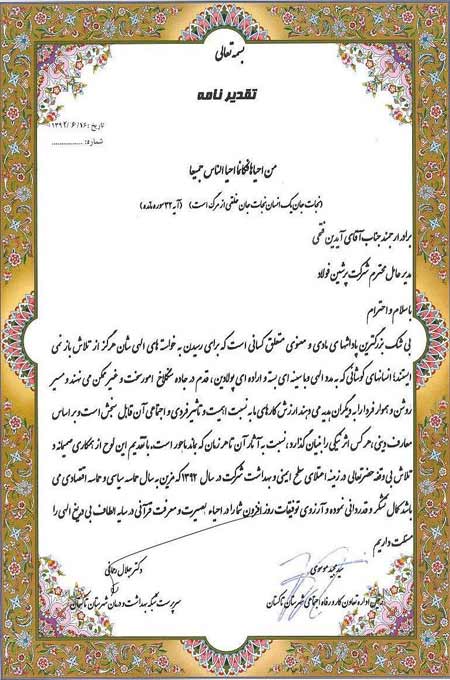 بسمه تعالی
تقدیر نامه
تاریخ: ۱۳۹۲/۶/۱۶
شماره: ................
من احیاها فکانما احیا الناس جمیعا
(نجات جان یک انسان نجات جان خلقی از مرگ است) (آیه ۳۲ سوره مائده)
برادر ارجمند جناب آقای آیدین فقهی
مدیر عامل محترم شرکت پرشین فولاد
با سلام و احترام
بی شک بزرگترین پاداشهای مادی و معنوی متعلق کسانی است که برای رسیدن به خواسته های الهی شان هرگز از تلاش باز نمی
ایستند؛ انسانهای کوشائی که به مدد الهی و با سینه ای بسته و اراده ای پولادین، قدم در جاده سنگلاخ امور سخت و غیر ممکن می نهند و مسیر
روشن و هموار فردا را به دیگران هدیه می دهند ارزش کارهای ما به نسبت اهمیت و تأثیر فردی و اجتماعی آن قابل سنجش است و بر اساس
معارف دینی؛ هر کس اثر نیکی را بنیان گذارد، نسبت به آثار آن تا هر زمان که بماند ماجور است. با تقدیم این لوح از همکاری صمیمانه و
تلاش بی وقفه حضرتعالی در زمینه اعتلای سطح ایمنی و بهداشت شرکت در سال ۱۳۹۲ که مزین به سال حماسه سیاسی و حماسه اقتصادی می
باشد کمال تشکر و قدردانی نموده و آرزوی توفیقات روز افزون شما را در احیاء بصیرت و معرفت قرآنی در سایه الطاف بی دریغ الهی را
مسئلت داریم
سید مجید موسوی
رئیس اداره تعاون کار و رفاه اجتماعی شهرستان تاکستان
دکتر جلال رحمانی
سرپرست شبکه بهداشت و درمان شهرستان تاکستان